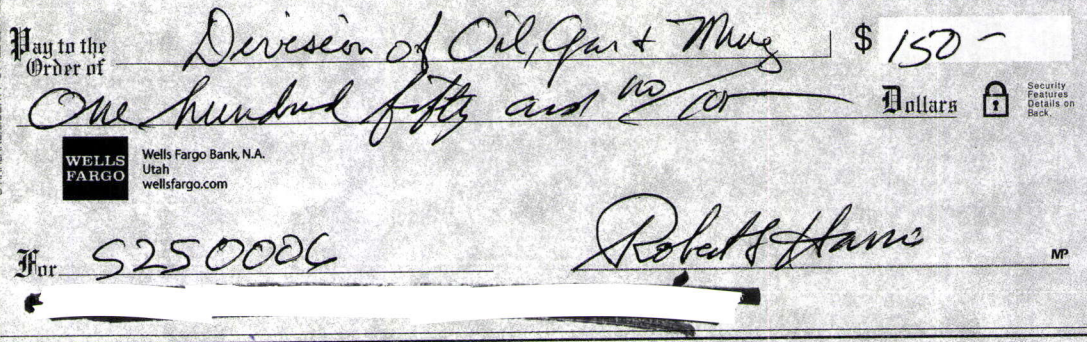 Pay to the Order of Division of Oil, Gas + Mng $ 150 -
One hundred fifty and no/00 Dollars Security Features Details on Back.
WELLS FARGO Wells Fargo Bank, N.A.
Utah
wellsfargo.com
For S250006 Robert S Harris MP